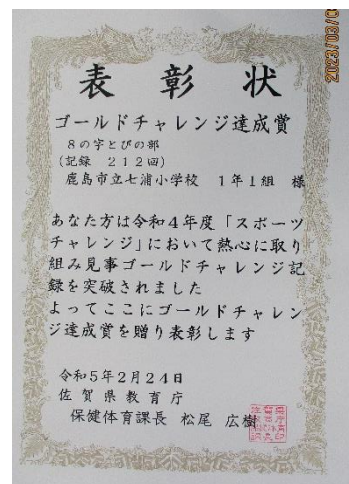 2023/03/0
表彰状
ゴールドチャレンジ達成賞
8の字とびの部
(記録 212回)
鹿島市立七浦小学校 1年1組 様
あなた方は令和4年度「スポーツ
チャレンジ」において熱心に取り
組み見事ゴールドチャレンジ記
録を突破されました
よってここにゴールドチャレン
ジ達成賞を贈り表彰します
令和5年2月24日
佐賀県教育庁
保健体育課長 松尾 広樹